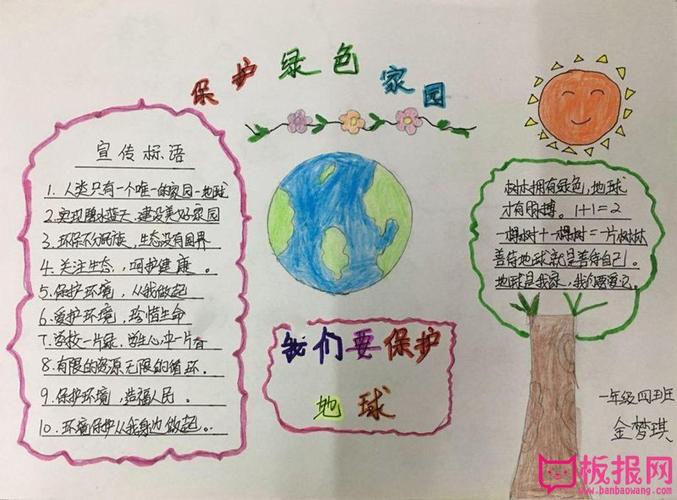 保护绿色家园
宣传标语
1. 人类只有一个唯一的家园—地球
2. 实现碧水蓝天,建设美好家园
3. 环保不分民族,生态没有国界
4. 关注生态,呵护健康。
5. 保护环境,从我做起
6. 爱护环境,珍惜生命
7. 学校一片绿,学生心中一片春
8. 有限的资源无限的循环.
9. 保护环境,造福人民。
10. 环境保护从我身边做起。
我们要保护
地球
树木拥有绿色,地球
才有脉搏。1+1=2
一棵树+一棵树=一片树林
善待地球就是善待自己。
地球是我家,我们要爱它。
一年级四班
金梦琪
板报网
www.banbaowang.com